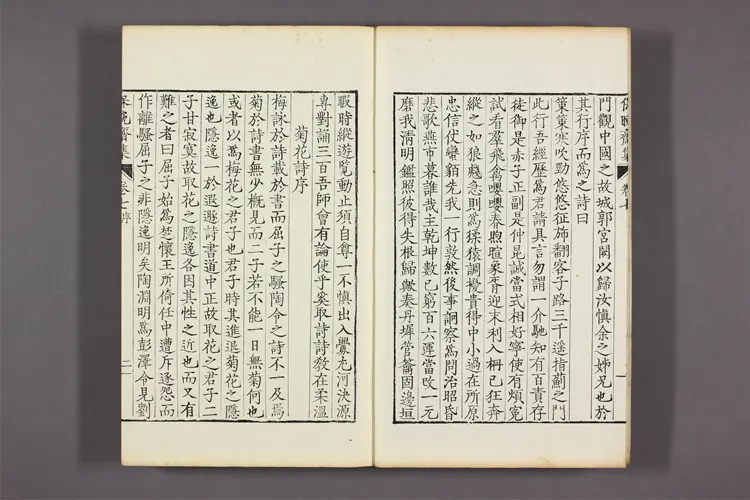 門觀中國之故城郭宮闕以歸汝愼余之姊兄也於
其行序而爲之詩曰
策策寒吹勁悠悠征旆翻客子路三千遙指薊之門
此行吾經歷爲君請具言勿謂一介馳知有百責存
徒御是赤子正副是仲昆誠當式相好寧使有煩寃
試看羣飛禽嚶嚶春煦暄豪胥迎末利入柵已狂奔
縱之如狼𧲣急則爲猱猿調擾貴得中小過在所原
忠信伏蠻貊先我一行敦然後事詗察爲問治昭昏
悲歌燕市暮誰哉主乾坤數已窮百六運當啟一元
磨我淸明鑑照彼得失根歸歟奏丹墀管籥固邊垣
保晩齋集
卷七
一
暇時縱遊覽動止須自尊一不愼出入釁尤河決源
專對誦三百吾師會有論使乎奚取詩詩敎在柔溫
菊花詩序
梅詠於詩載於書而屈子之騷陶令之詩不一及焉
菊於詩書無少槪見而二子若不能一日無菊何也
或者以爲梅花之君子也君子時其進退菊花之隱
逸也隱逸一於遐遯詩書道中正故取花之君子二
子甘寂寞故取花之隱逸各因其性之近也而又有
難之者曰屈子始爲楚懷王所倚任中遭斥逐怨而
作離騷屈子之非隱逸明矣陶淵明爲彭澤令見劉
保晩齋集
卷七序
二